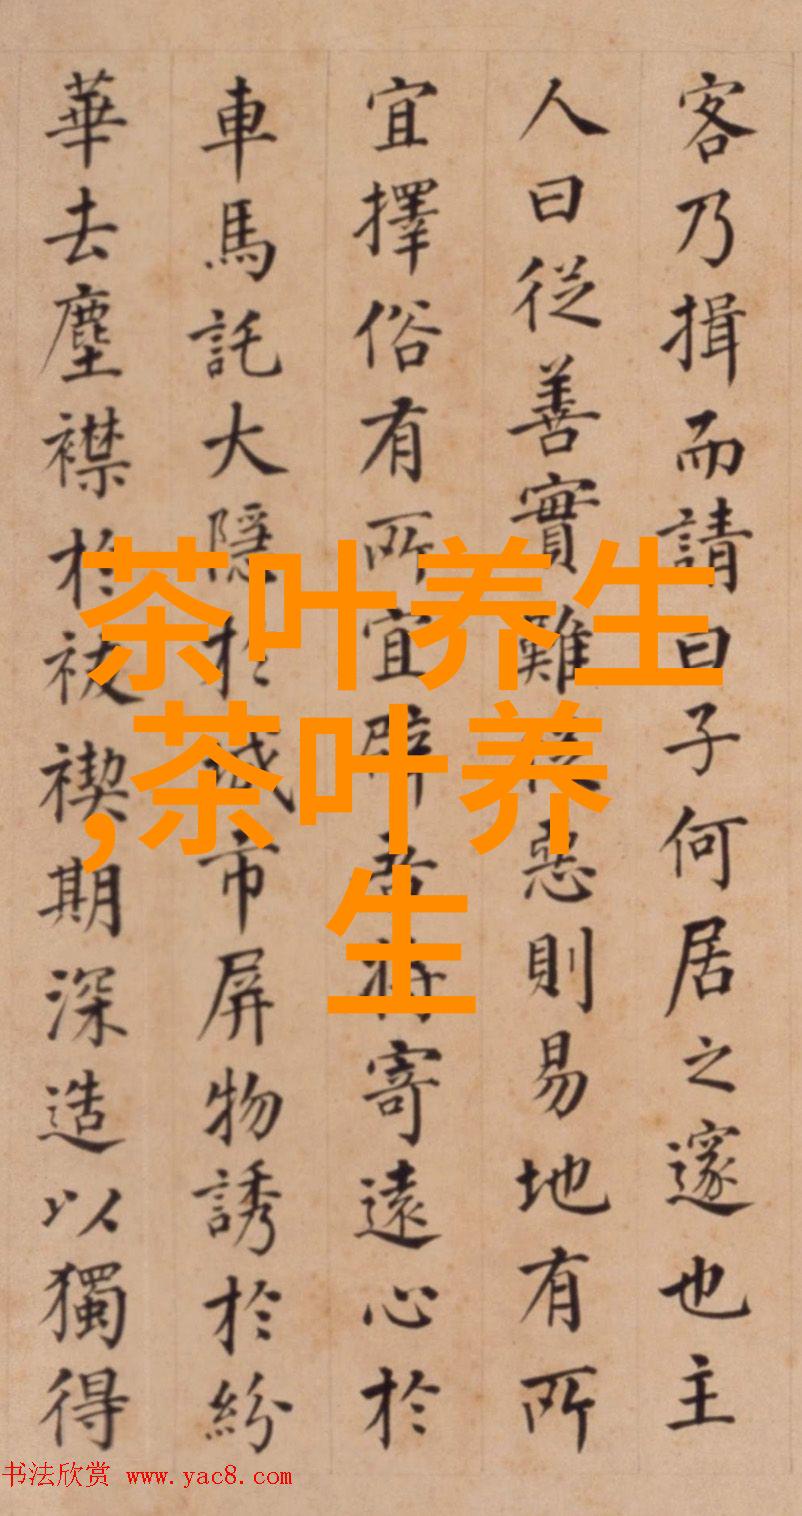 客乃揖而請曰子何居之邃也主
人曰從善實難從惡則易地有所
宜擇俗有所宜辟吾將寄遠心於
車馬託大隱於城市屏物誘於紛
華去塵襟於祓禊期深造以獨得
茶叶养生
,茶叶养
生
书法欣赏 www.yac8.com